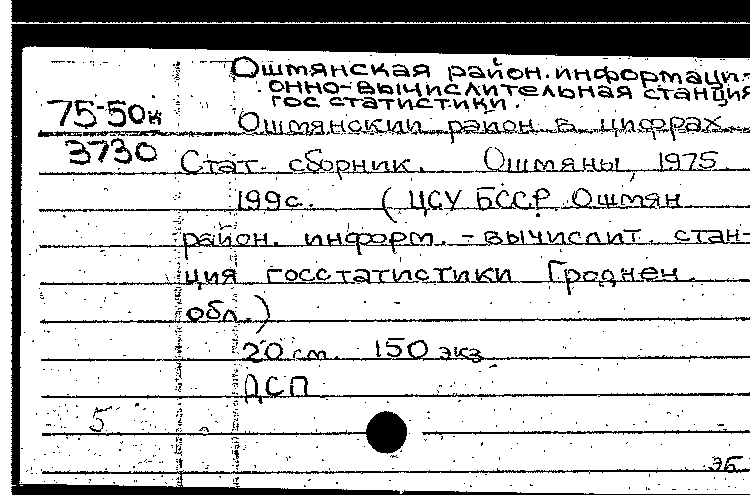 Ошмянская район. информаци-
онно-вычислительная станция
гос статистики.
75-50к
3730
Ошмянский район в цифрах
Стат. сборник. Ошмяны, 1975
199с. (ЦСУ БССР Ошмян
район. информ. - вычислит. стан-
ция госстатистики Гроднен.
обл.)
20 см. 150 экз
ДСП
5
эб